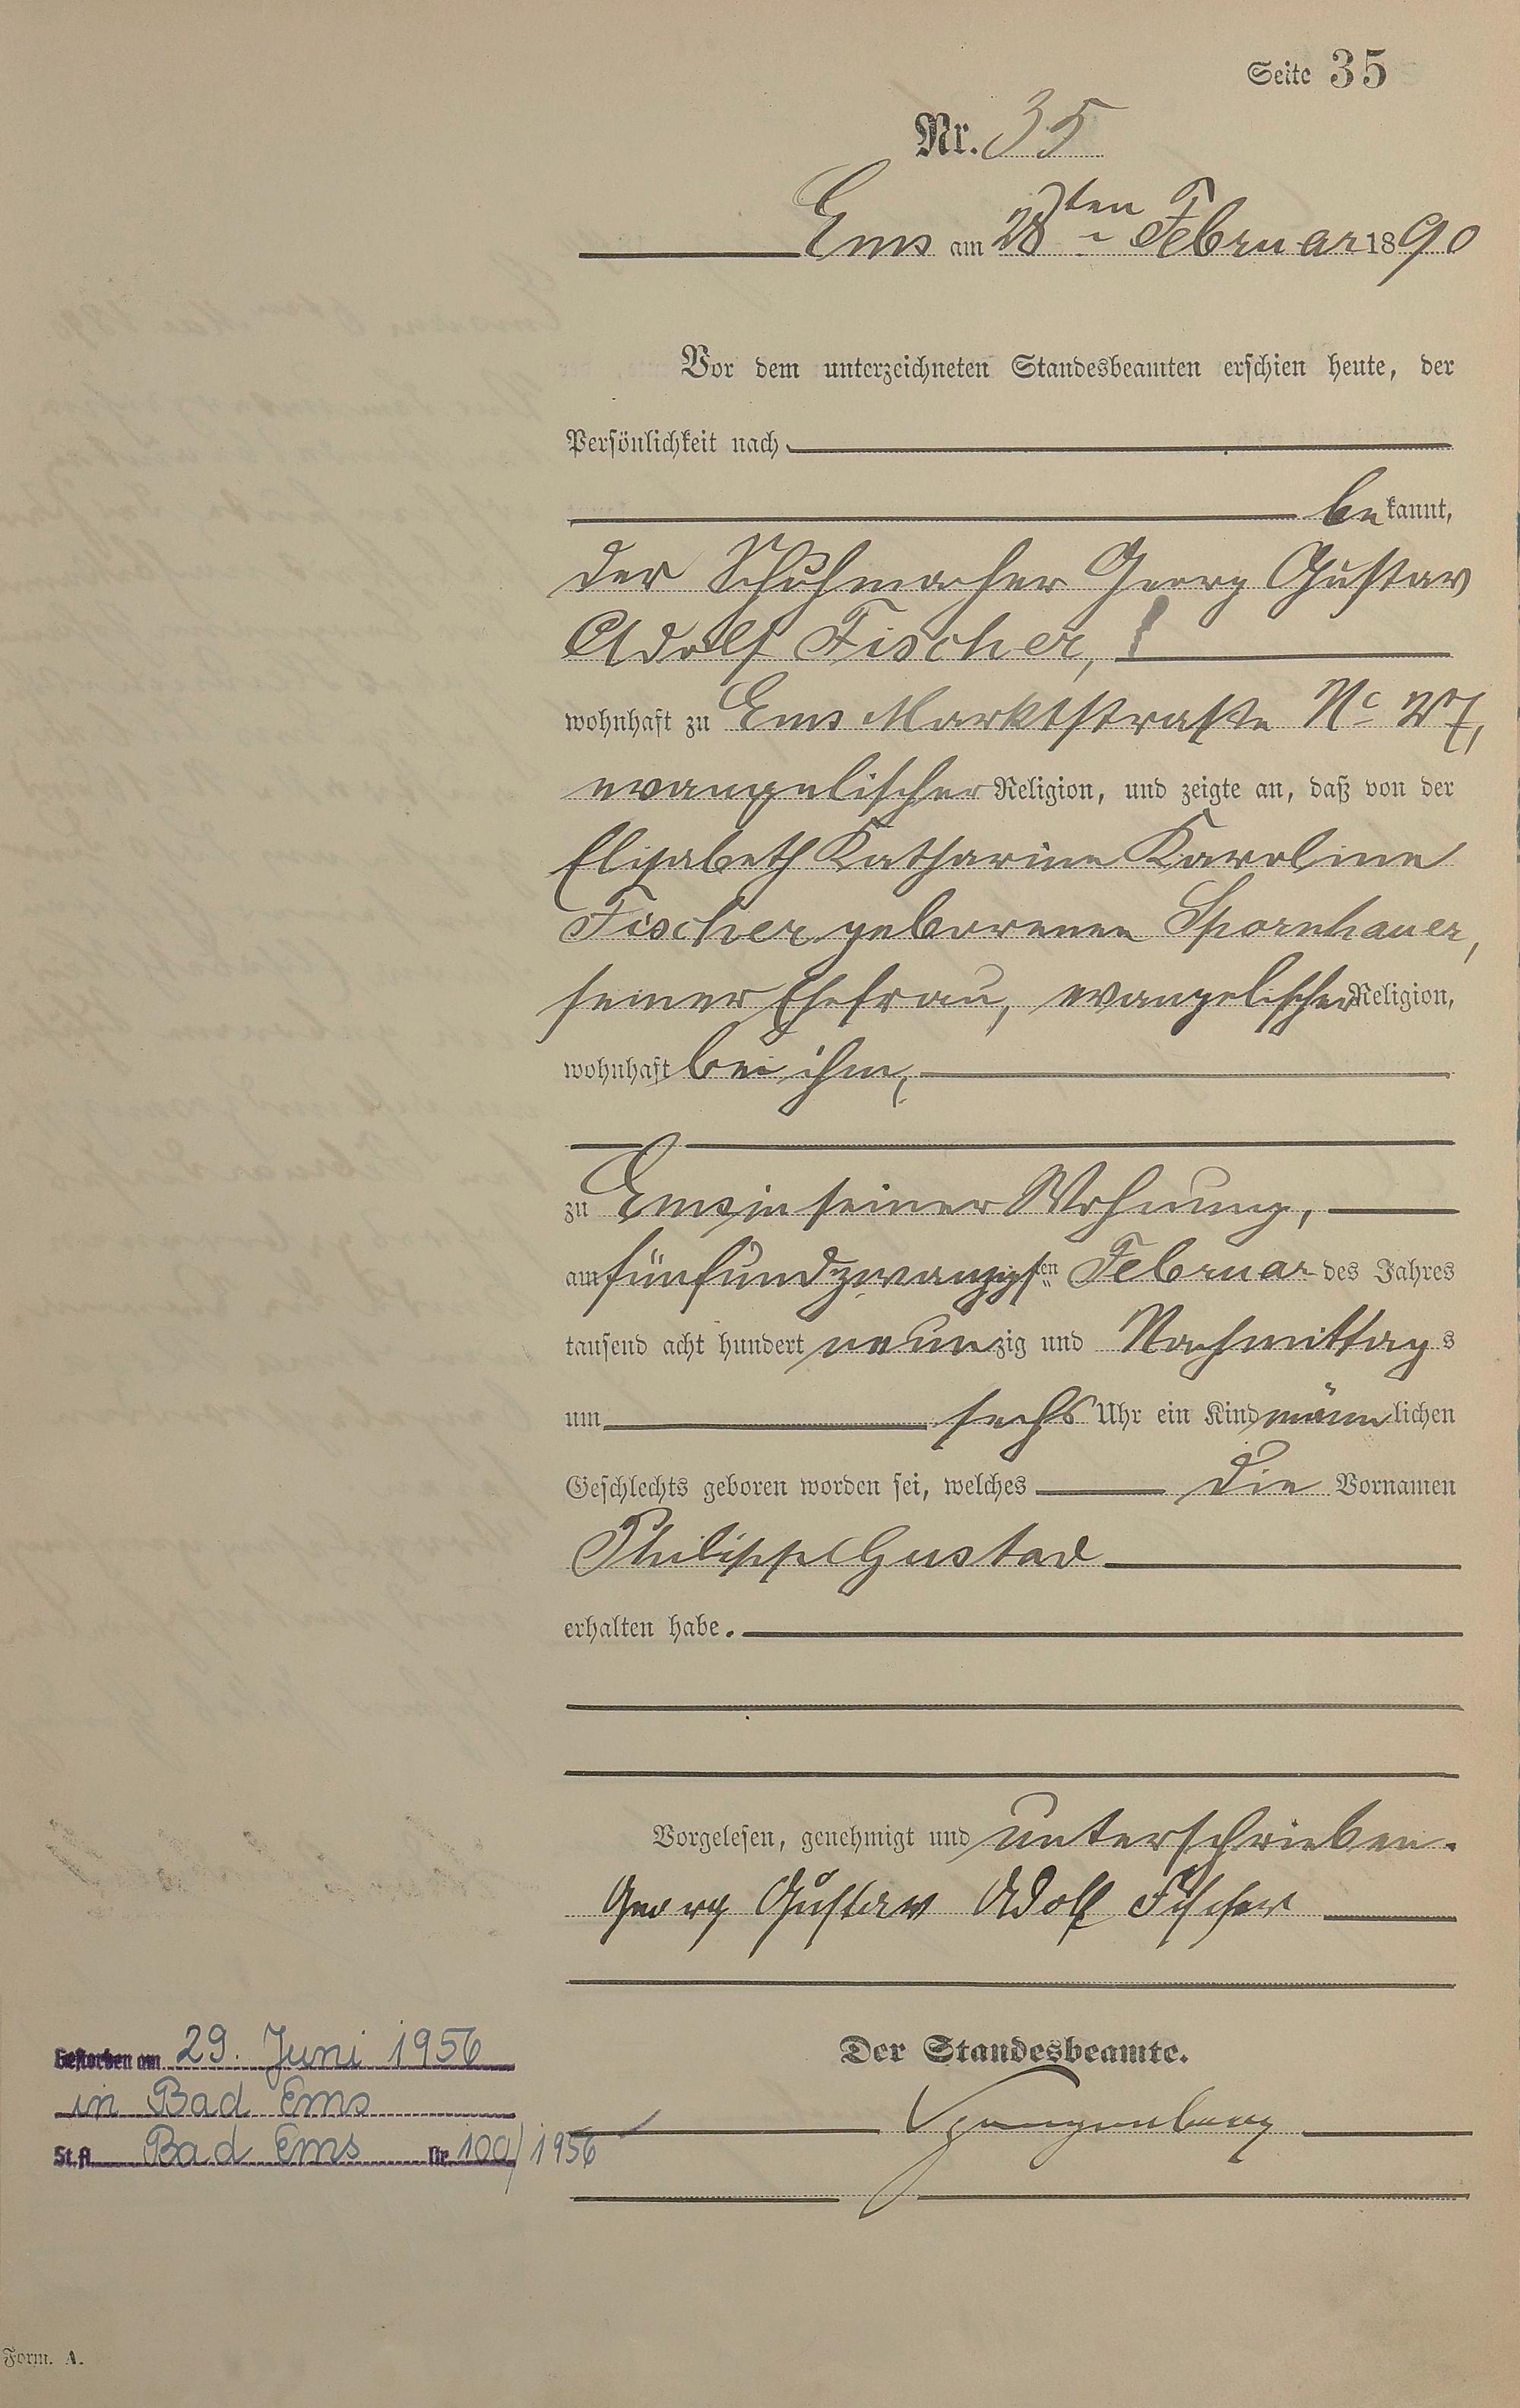 Seite 35
Nr. 35
Ems am 28ten Februar 1890
Vor dem unterzeichneten Standesbeamten erschien heute, der
Persönlichkeit nach
bekannt,
der Schuhmacher Georg Gustav
Adolf Fischer,
wohnhaft zu Ems Marktstraße No 27,
evangelischer Religion, und zeigte an, daß von der
Elisabeth Katharine Karoline
Fischer geborenen Spornhauer,
seiner Ehefrau, evangelischer Religion,
wohnhaft bei ihm,
zu Ems in seiner Wohnung,
am fünfundzwanzigsten Februar des Jahres
tausend acht hundert neunzig und Nachmittags
um sechs Uhr ein Kind männlichen
Geschlechts geboren worden sei, welches die Vornamen
Philipp Gustav
erhalten habe.
Vorgelesen, genehmigt und unterschrieben.
Georg Gustav Adolf Fischer
Der Standesbeamte.
Spangenberg
Gestorben am 29. Juni 1956
in Bad Ems
St.A. Bad Ems Nr. 100/1956
Form. A.